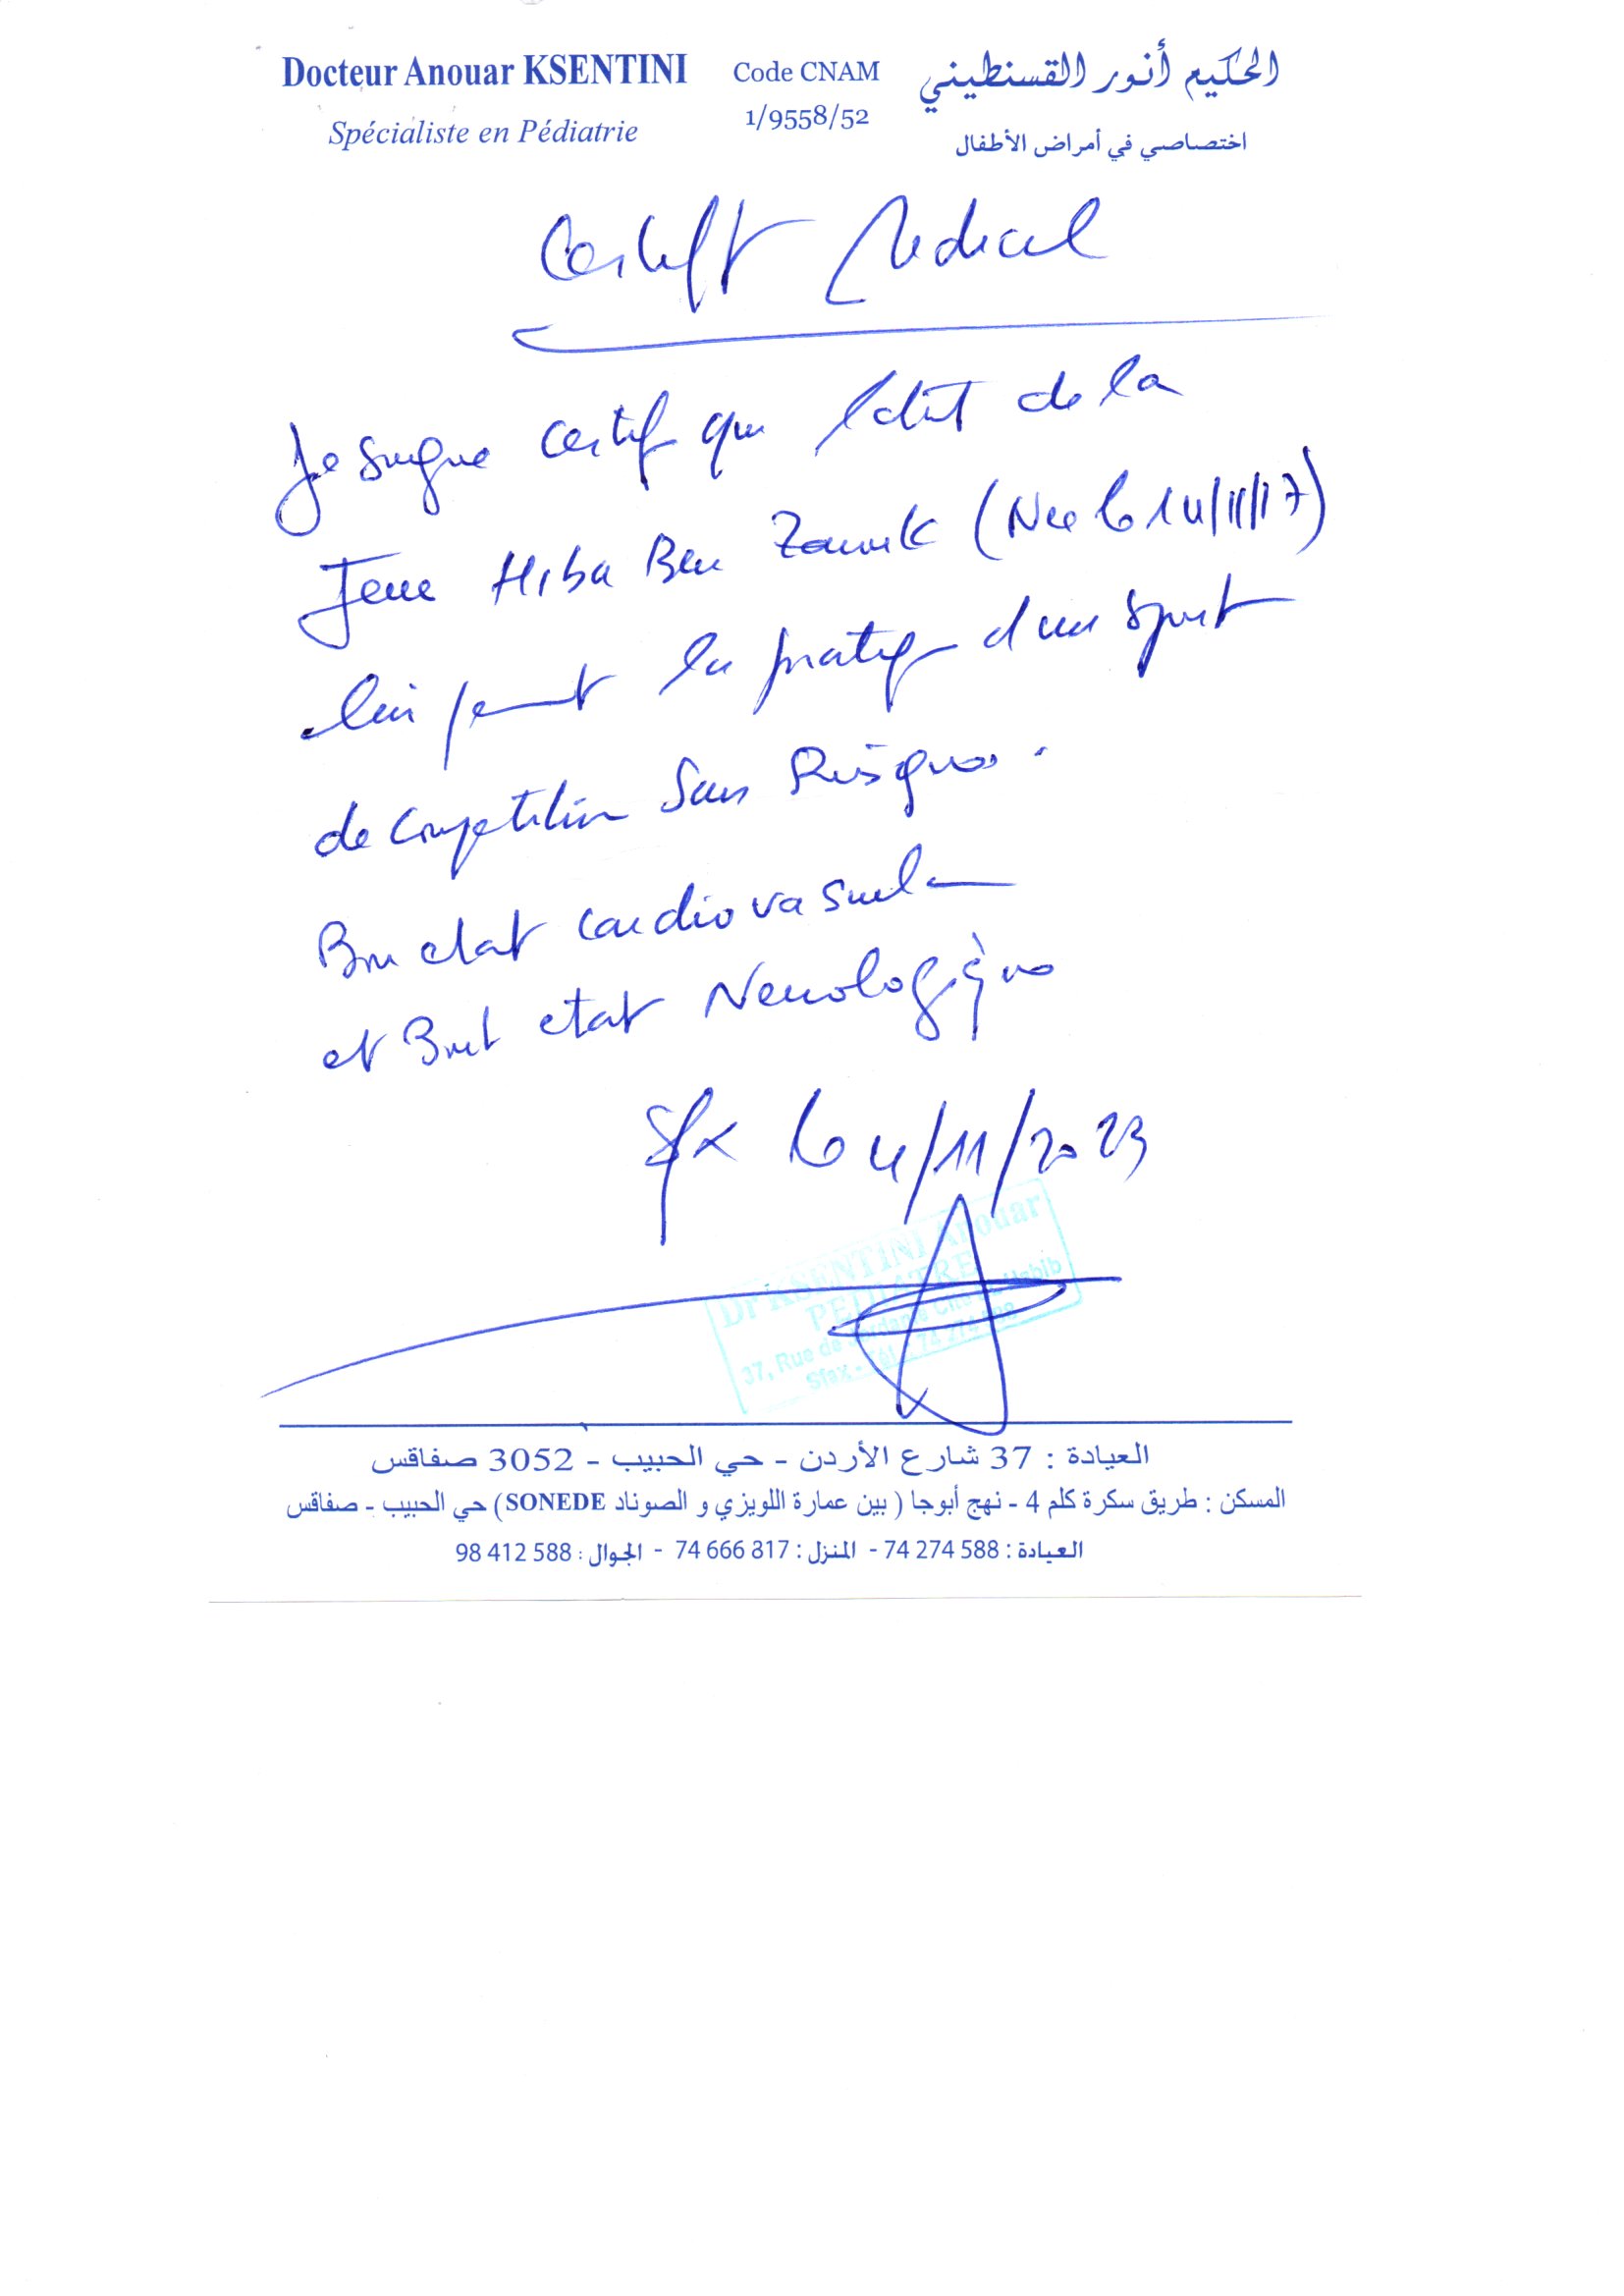 Docteur Anouar KSENTINI
Spécialiste en Pédiatrie
Code CNAM
1/9558/52
الحكيم أنور القسنطيني
اختصاصي في أمراض الأطفال
Certift Medical
Je sugne certif que l'etat de la
Jeune Hiba Ben (Nee le 14/11/17)
lui permet la pratiq d'un sport
de Competition Sans Risques.
Bon etat cardiovasculai
et Bon etat Neurologique
Sfx le 4/11/2023
Dr KSENTINI Anouar
PEDIATRE
37, Rue de Jordanie Cité El Habib
Sfax - Tél : 74 274 588
العيادة : 37 شارع الأردن - حي الحبيب - 3052 صفاقس
المسكن : طريق سكرة كلم 4 - نهج أبوجا ( بين عمارة اللويزي و الصوناد SONEDE) حي الحبيب - صفاقس
العيادة : 74 274 588 - المنزل : 74 666 817 - الجوال : 98 412 588